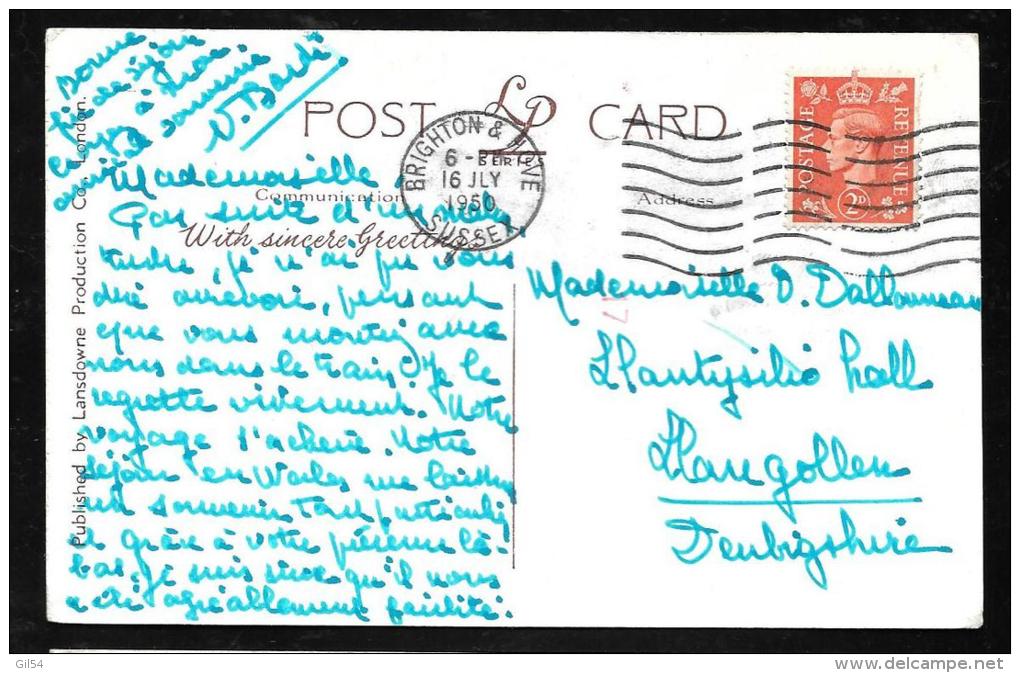 Bonne
fin de séjour
à
Croyez
souvenir
POST CARD
LP
SERIES
BRIGHTON & HOVE
6-
16 JLY
1950
SUSSEX
POSTAGE REVENUE
2D
Communication
Address
With sincere Greetings
Published by Lansdowne Production Co., London.
Mademoiselle
Par suite d'un malen
tendu, je n'ai pu vous
dire au revoir, pensant
que vous montiez avec
nous dans le train. Je le
regrette vivement. Notre
voyage s'achève. Notre
séjour en Wales me laissera
un souvenir tout particulier
et grâce à votre présence là-
bas, je suis sûre qu'il nous
a été agréablement facilité.
Mademoiselle D. Dallonneau
Llantysilio hall
Llangollen
Denbigshire
Gil54
www.delcampe.net